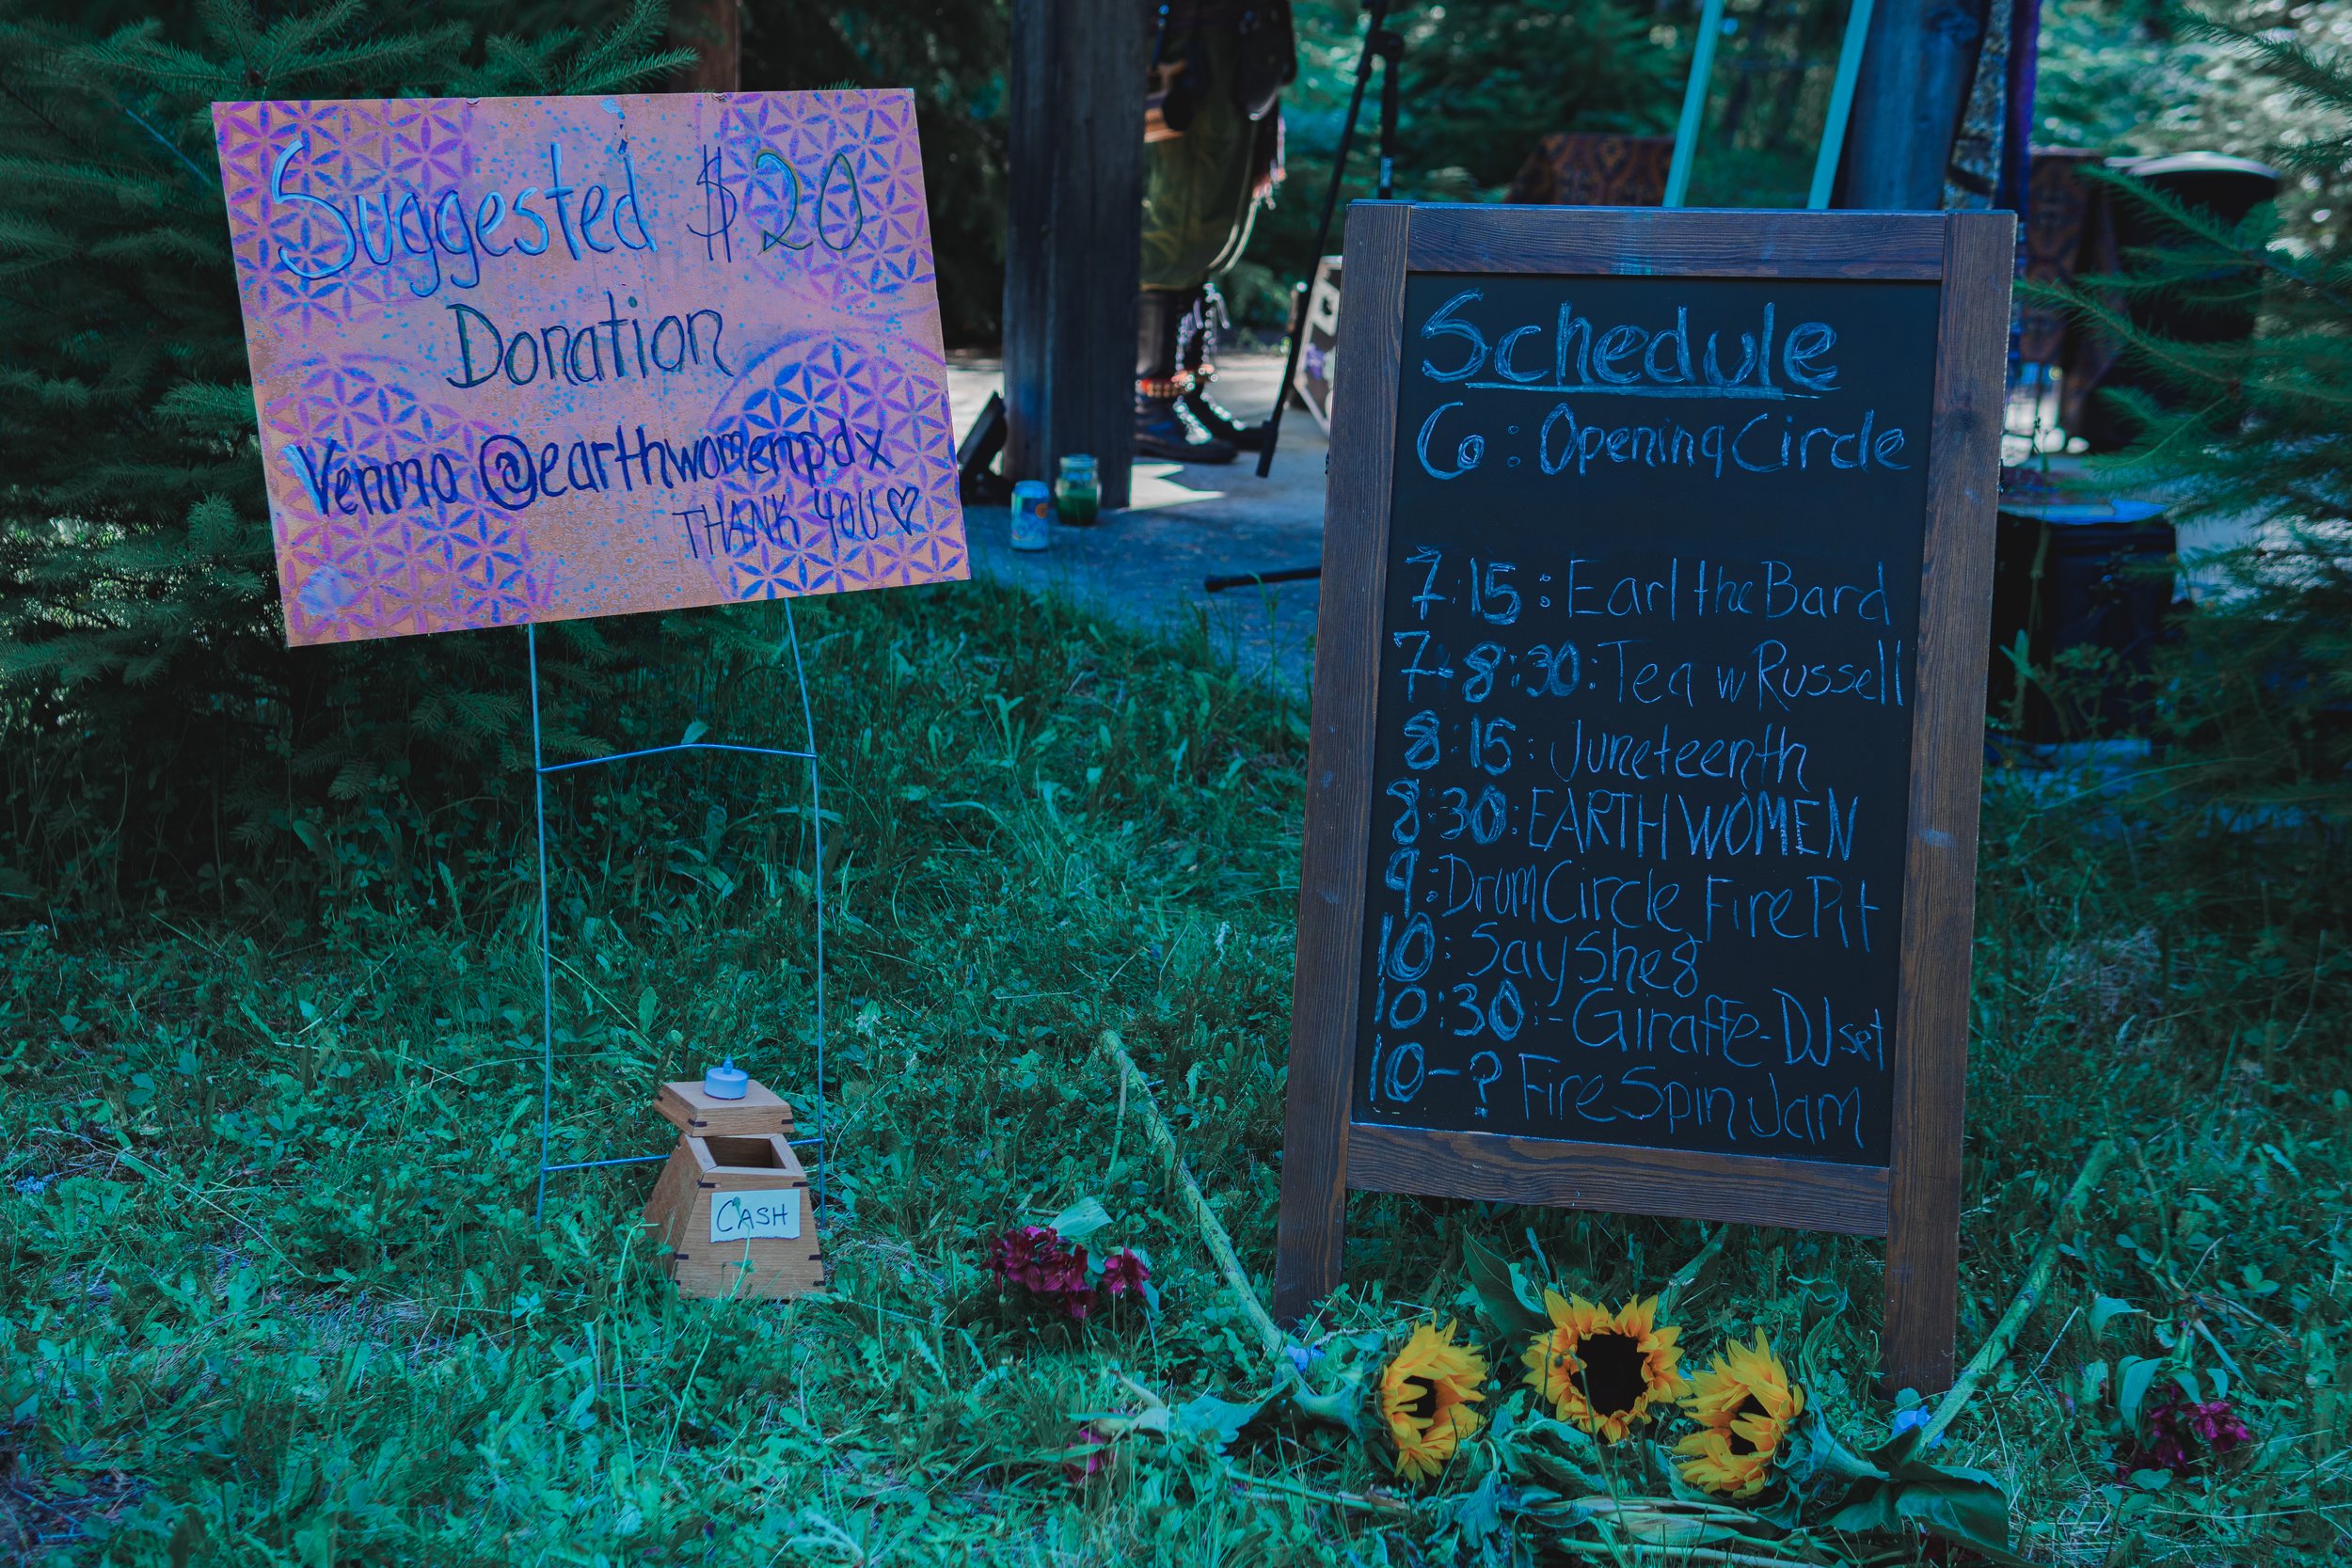 Suggested $20
Donation
Venmo @earthwomenpdx
THANK YOU
CASH
Schedule
6: Opening Circle
7:15: Earl the Bard
7-8:30: Tea w Russell
8:15: Juneteenth
8:30: EARTH WOMEN
9: Drum Circle Fire Pit
10: Say She8
10:30:- Giraffe-DJ set
10-? Fire Spin Jam